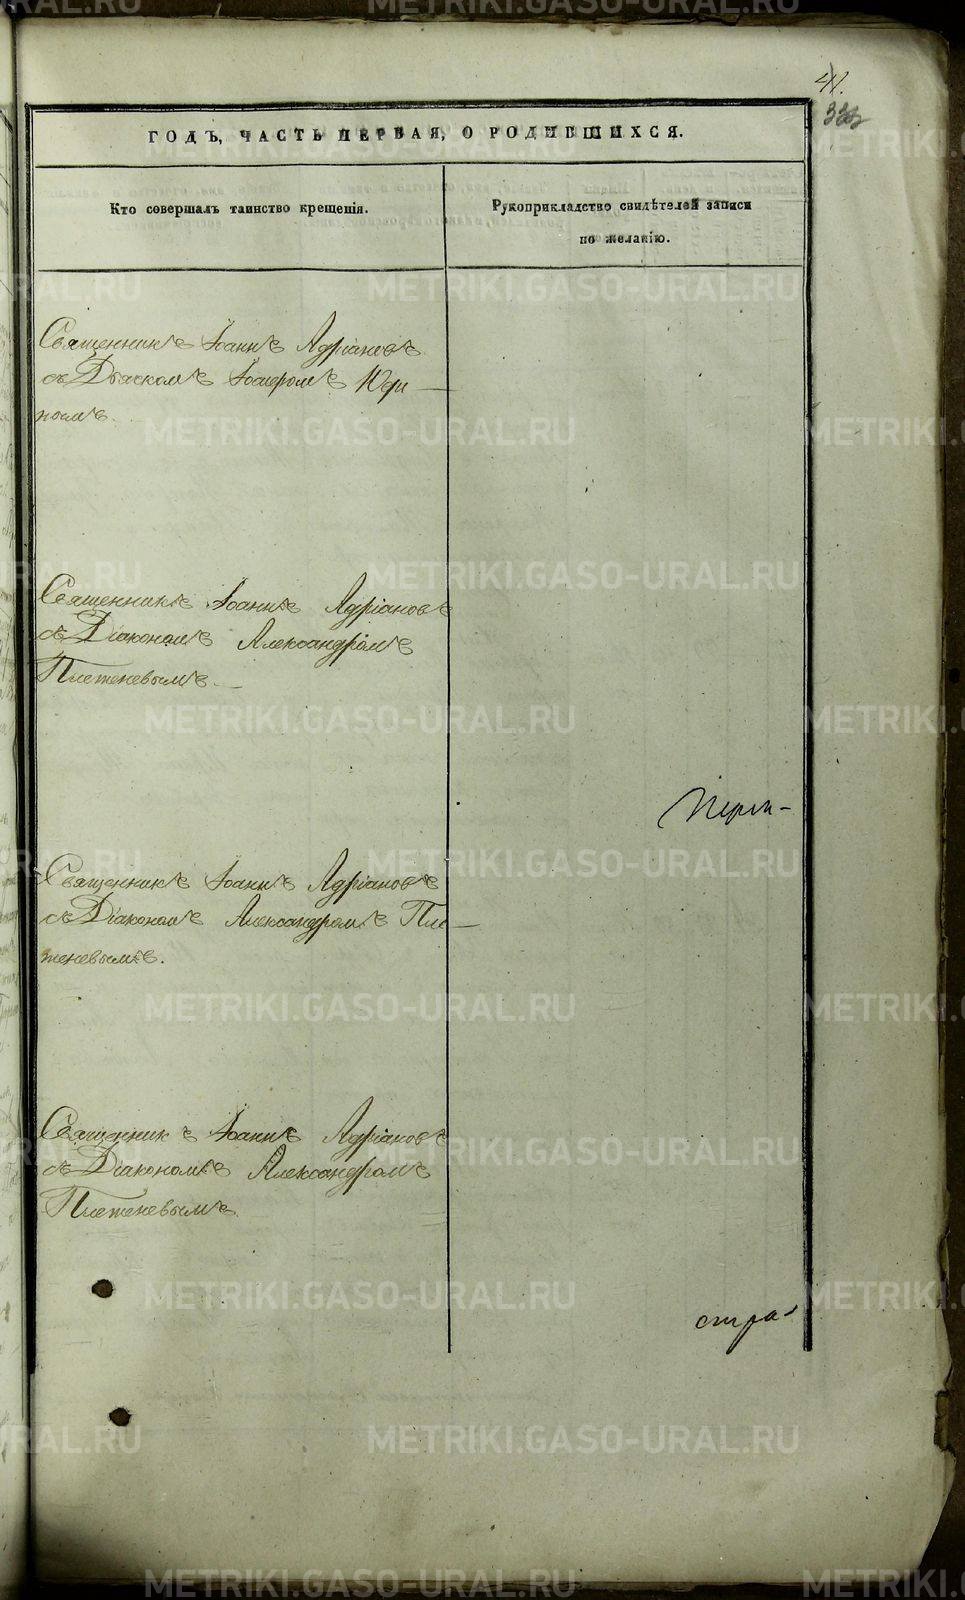 41.
ГОДЪ, ЧАСТЬ ПЕРВАЯ, О РОДИВШИХСЯ.
Кто совершалъ таинство крещенія.
Рукоприкладство свидѣтелей записи
по желанію.
Священникъ Іоаннъ Адріановъ
съ Дьячкомъ
Священникъ Іоаннъ Адріановъ
съ Діакономъ Александромъ
Плетеневымъ.
Священникъ Іоаннъ Адріановъ
съ Діакономъ Александромъ Пле-
теневымъ.
Священникъ Іоаннъ Адріановъ
съ Діакономъ Александромъ
Плетеневымъ.
METRIKI.GASO-URAL.RU